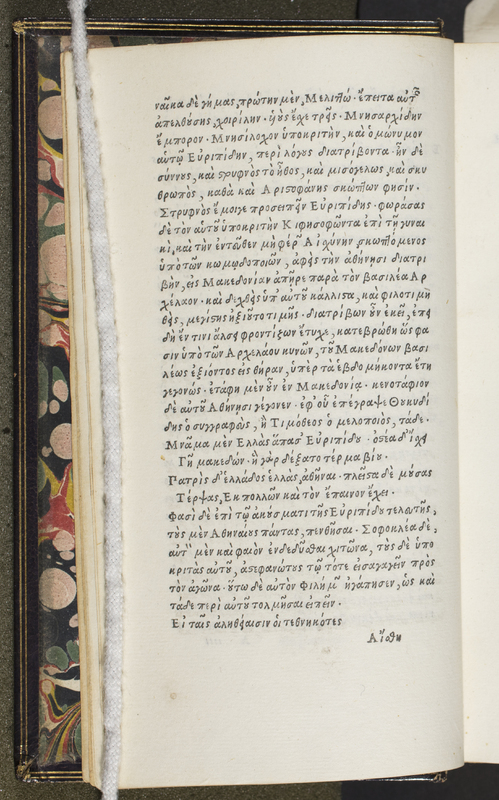 ναῖκα δὲ γῆμας πρώτην μὲν, Μελιτώ. ἔπειτα αὐτοῦ
ἀπελθούσης, χοιρίλην. υἱοὺς ἔχε τρεῖς. Μνησαρχίδην
ἔμπορον. Μνησίλοχον ὑποκριτὴν, καὶ ὁμώνυμον
αὑτῷ Εὐριπίδην, περὶ λόγους διατρίβοντα. ἦν δὲ
σύννους, καὶ στρυφνὸς τὸ ἦθος, καὶ μισόγελως, καὶ σκυ
θρωπὸς, καθὰ καὶ Αριστοφάνης σκώπτων φησίν.
Στρυφνὸς ἔμοιγε προσειπεῖν Εὐριπίδης. φωράσας
δὲ τὸν αὑτοῦ ὑποκριτὴν Κιφησοφῶντα ἐπὶ τῇ γυναι
κὶ, καὶ τὴν ἐντεῦθεν μὴ φέρων Αἰσχύνην, σκωπτόμενος
ὑπὸ τῶν κωμῳδοποιῶν, ἀφεὶς τὴν ἀθήνησι διατρι
βὴν, εἰς Μακεδονίαν ἀπῆρε παρὰ τὸν βασιλέα Αρ
χέλαον. καὶ δεχθεὶς ὑπ' αὐτοῦ κάλλιστα, καὶ φιλοτιμη
θεὶς, μεγίστης ἠξιοῦτο τιμῆς. διατρίβων οὖν ἐκεῖ, ἐπει
δὴ ἔν τινι ἄλσει φροντίζων ἔτυχε, κατεβρώθη ὥς φα
σιν ὑπὸ τῶν Αρχελάου κυνῶν, τοῦ Μακεδόνων βασι
λέως ἐξιόντος εἰς θήραν, ὑπὲρ τὰ ἑβδομήκοντα ἔτη
γεγονώς. ἐτάφη μὲν οὖν ἐν Μακεδονίᾳ. κενοτάφιον
δὲ αὐτοῦ Αθήνησι γέγονεν. ἐφ' οὗ ἐπέγραψε Θουκυδί
δης ὁ συγγραφεὺς, ἢ Τιμόθεος ὁ μελοποιὸς, τάδε.
Μνᾶμα μὲν Ελλὰς ἅπασ' Εὐριπίδου. ὀστέα δ' ἴσχει
Γῆ μακεδών. ᾗ γὰρ δέξατο τέρμα βίου.
Πατρὶς δ' ἑλλάδος ἑλλὰς, ἀθῆναι. πλεῖστα δὲ μούσας
Τέρψας, Εκ πολλῶν καὶ τὸν ἔπαινον ἔχει.
Φασὶ δὲ ἐπὶ τῷ ἀκούσματι τῆς Εὐριπίδου τελευτῆς,
τοὺς μὲν Αθηναίους πάντας, πενθῆσαι. Σοφοκλέα δὲ,
αὐτὸν μὲν καὶ φαιὸν ἐνδεδῦσθαι χιτῶνα, τοὺς δὲ ὑπο
κριτὰς αὐτοῦ, ἀστεφανώτους τῷ τότε εἰσαγαγεῖν πρὸς
τὸν ἀγῶνα. οὕτω δὲ αὐτὸν Φιλήμων ἠγάπησεν, ὡς καὶ
τάδε περὶ αὐτοῦ τολμῆσαι εἰπεῖν.
Εἰ ταῖς ἀληθείαισιν οἱ τεθνηκότες
Αἴσθη